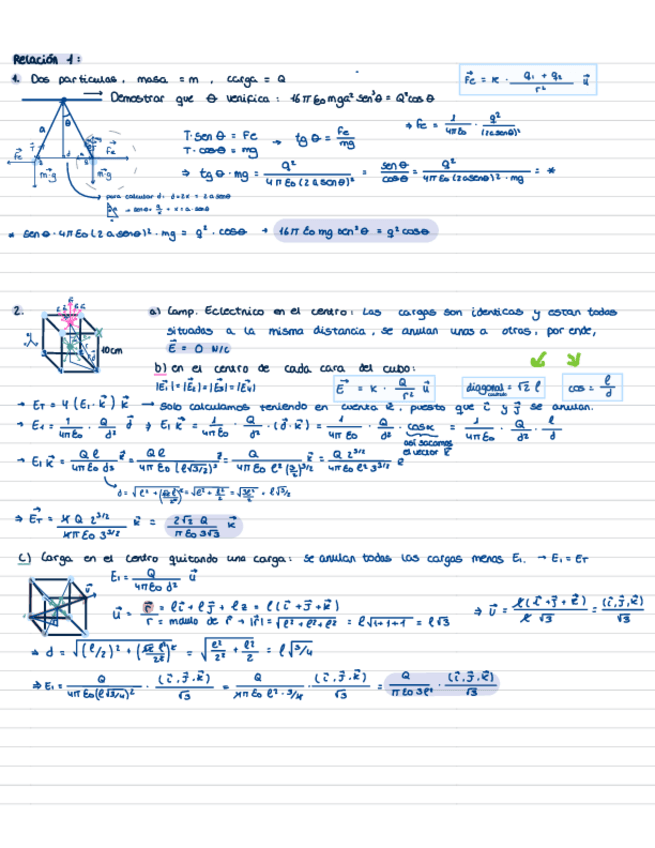 Relación 1:
1. Dos partículas, masa = m, carga = Q
F⃗e = K · (q₁ + q₂)/r² u⃗
→ Demostrar que θ verifica: 16π ε₀ mga² sen³θ = Q² cosθ
T·senθ = Fe
T·cosθ = mg
→ tgθ = Fe/mg
→ Fe = 1/(4πε₀) · q²/(2a senθ)²
⇒ tgθ · mg = q²/(4πε₀(2a senθ)²) = senθ/cosθ = q²/(4πε₀(2a senθ)² · mg) = *
para calcular d: d=2x = 2a senθ
* senθ · 4πε₀(2a senθ)² · mg = q² · cosθ → 16π ε₀ mg sen³θ = q² cosθ
2.
10cm
a) Camp. Eclectnico en el centro: Las cargas son identicas y estan todas
situadas a la misma distancia, se anulan unas a otras, por ende,
E⃗ = 0 N/C
b) en el centro de cada cara del cubo:
|E₁| = |E₂| = |E₃| = |E₄|
E⃗ = K · Q/r² u⃗
diagonal = √2 l
cuadrado
cos = l/d
→ E_T = 4 (E₁ · k⃗) k⃗ → Solo calculamos teniendo en cuenta k⃗, puesto que i⃗ y j⃗ se anulan.
→ E₁ = 1/(4πε₀) · Q/d² d⃗ ⇒ E₁ k⃗ = 1/(4πε₀) · Q/d² · (d⃗ · k⃗) = 1/(4πε₀) · Q/d² · cosα = 1/(4πε₀) · Q/d² · l/d
así sacamos
el vector k⃗
→ E₁ k⃗ = Ql/(4πε₀ d³) k⃗ = Ql/(4πε₀(l√3/2)³) k⃗ = Q/(4πε₀ l²(3/2)^3/2) k⃗ = Q 2^3/2/(4πε₀ l² 3^3/2)
⇒ E⃗_T = 4 Q 2^3/2/(4πε₀ 3^3/2) k⃗ = 2√2 Q/(πε₀ 3√3) k⃗
c) Carga en el centro quitando una carga: se anulan todas las cargas menos E₁. → E₁ = E_T
E₁ = Q/(4πε₀ d²) u⃗
u⃗ = r⃗ = li⃗ + lj⃗ + lz = l(i⃗ + j⃗ + k⃗)
r = modulo de r → |r⃗| = √(l² + l² + l²) = l√(1+1+1) = l√3
⇒ u⃗ = l(i⃗ + j⃗ + k⃗)/(l√3) = (i⃗,j⃗,k⃗)/√3
⇒ E₁ = Q/(4πε₀(l√3/4)²) · (i⃗,j⃗,k⃗)/√3 = Q/(4πε₀ l² · 3/4) · (i⃗,j⃗,k⃗)/√3 = Q/(πε₀ 3l²) · (i⃗,j⃗,k⃗)/√3